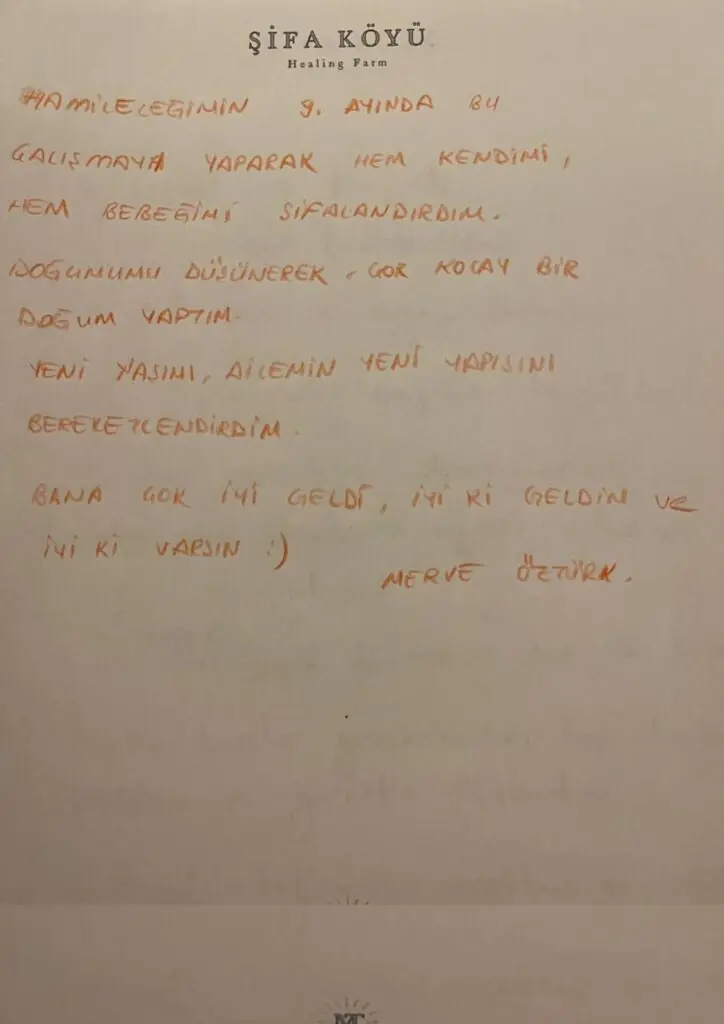 ŞİFA KÖYÜ
Healing Farm
HAMİLELEĞİMİN 9. AYINDA BU
ÇALIŞMAYA YAPARAK HEM KENDİMİ,
HEM BEBEĞİMİ ŞİFALANDIRDIM.
DOĞUMUMU DÜŞÜNEREK, ÇOK KOLAY BİR
DOĞUM YAPTIM.
YENİ YAŞIMI, AİLEMİN YENİ YAPISINI
BEREKETLENDİRDİM.
BANA ÇOK İYİ GELDİ, İYİ Kİ GELDİM VE
İYİ Kİ VARSIN :)
MERVE ÖZTÜRK.